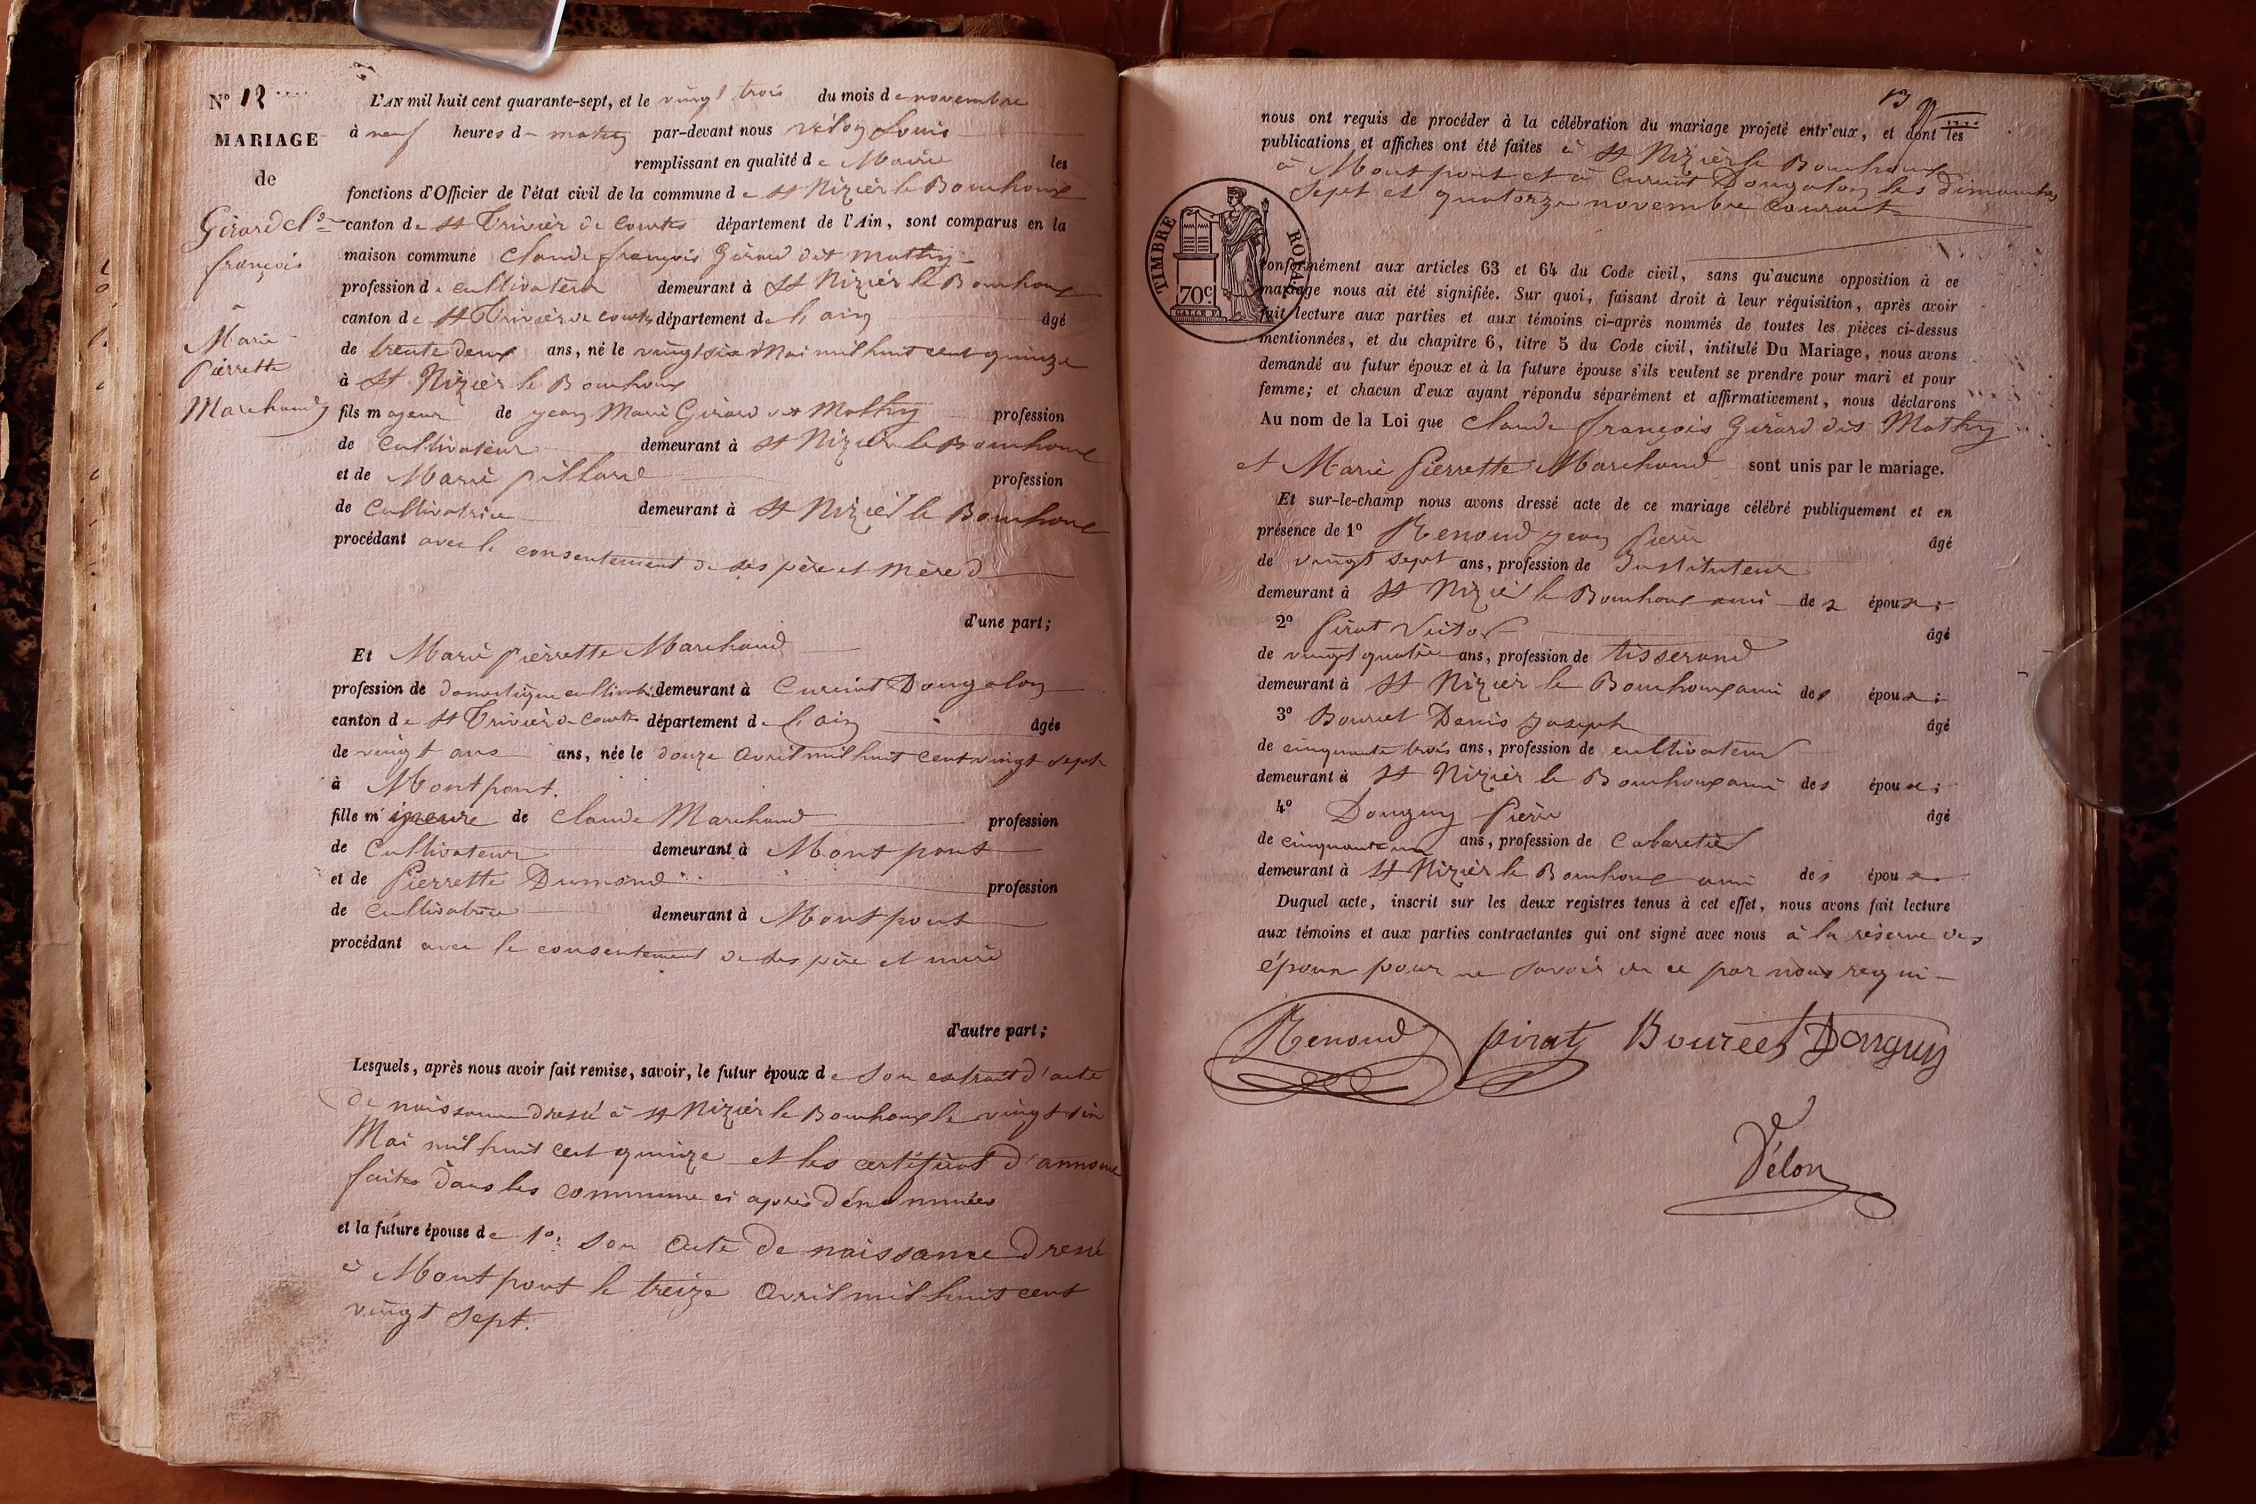 N° 12
MARIAGE
de
Girard Cl.
françois
à
Marie
Pierrette
Marchand
L'AN mil huit cent quarante-sept, et le vingt trois du mois de novembre
à neuf heures du matin par-devant nous Vélon Louis
remplissant en qualité de Maire les
fonctions d'Officier de l'état civil de la commune de St Nizier le Bouchoux
canton de St Trivier de Courtes département de l'Ain, sont comparus en la
maison commune Claude françois Girard dit Mathy
profession de cultivateur demeurant à St Nizier le Bouchoux
canton de St Trivier de Courtes département de l'ain âgé
de trente deux ans, né le vingt six Mai mil huit cent quinze
à St Nizier le Bouchoux
fils majeur de jean Marie Girard dit Mathy profession
de Cultivateur demeurant à St Nizier le Bouchoux
et de Marie pillard profession
de Cultivatrice demeurant à St Nizier le Bouchoux
procédant avec le consentement de ses père et mère
d'une part;
Et Marie pierrette Marchand
profession de domestique demeurant à Curciat Dongalon
canton de St Trivier de Courtes département de l'ain âgée
de vingt ans ans, née le douze avril mil huit cent vingt sept
à Montpont.
fille mineure de Claude Marchand profession
de Cultivateur demeurant à Montpont
et de Pierrette Dumond profession
de Cultivatrice demeurant à Montpont
procédant avec le consentement de ses père et mère
d'autre part;
Lesquels, après nous avoir fait remise, savoir, le futur époux de son extrait d'acte
de naissance dressé à St Nizier le Bouchoux le vingt six
Mai mil huit cent quinze et les certificat d'annonce
faites dans les commune ci après dénommées
et la future épouse de 1° son acte de naissance dressé
à Montpont le treize avril mil huit cent
vingt sept.
13
nous ont requis de procéder à la célébration du mariage projeté entr'eux, et dont les
publications et affiches ont été faites à St Nizier le Bouchoux
à Montpont et à Curciat Dongalon les dimanches
sept et quatorze novembre courant
TIMBRE ROYAL
70c
conformément aux articles 63 et 64 du Code civil, sans qu'aucune opposition à ce
mariage nous ait été signifiée. Sur quoi, faisant droit à leur réquisition, après avoir
fait lecture aux parties et aux témoins ci-après nommés de toutes les pièces ci-dessus
mentionnées, et du chapitre 6, titre 5 du Code civil, intitulé Du Mariage, nous avons
demandé au futur époux et à la future épouse s'ils veulent se prendre pour mari et pour
femme; et chacun d'eux ayant répondu séparément et affirmativement, nous déclarons
Au nom de la Loi que Claude françois Girard dit Mathy
et Marie Pierrette Marchand sont unis par le mariage.
Et sur-le-champ nous avons dressé acte de ce mariage célébré publiquement et en
présence de 1° Renoud jean Pierre âgé
de vingt sept ans, profession de Instituteur
demeurant à St Nizier le Bouchoux ami des époux;
2° Pirat Victor âgé
de vingt quatre ans, profession de tisserand
demeurant à St Nizier le Bouchoux ami des époux;
3° Bourcet Denis Joseph âgé
de cinquante trois ans, profession de cultivateur
demeurant à St Nizier le Bouchoux ami des époux;
4° Donguy Pierre âgé
de cinquante un ans, profession de Cabaretier
demeurant à St Nizier le Bouchoux ami des époux
Duquel acte, inscrit sur les deux registres tenus à cet effet, nous avons fait lecture
aux témoins et aux parties contractantes qui ont signé avec nous à la réserve des
époux pour ne savoir de ce par nous requi
Renoud pirat Bourcet Donguy
Vélon